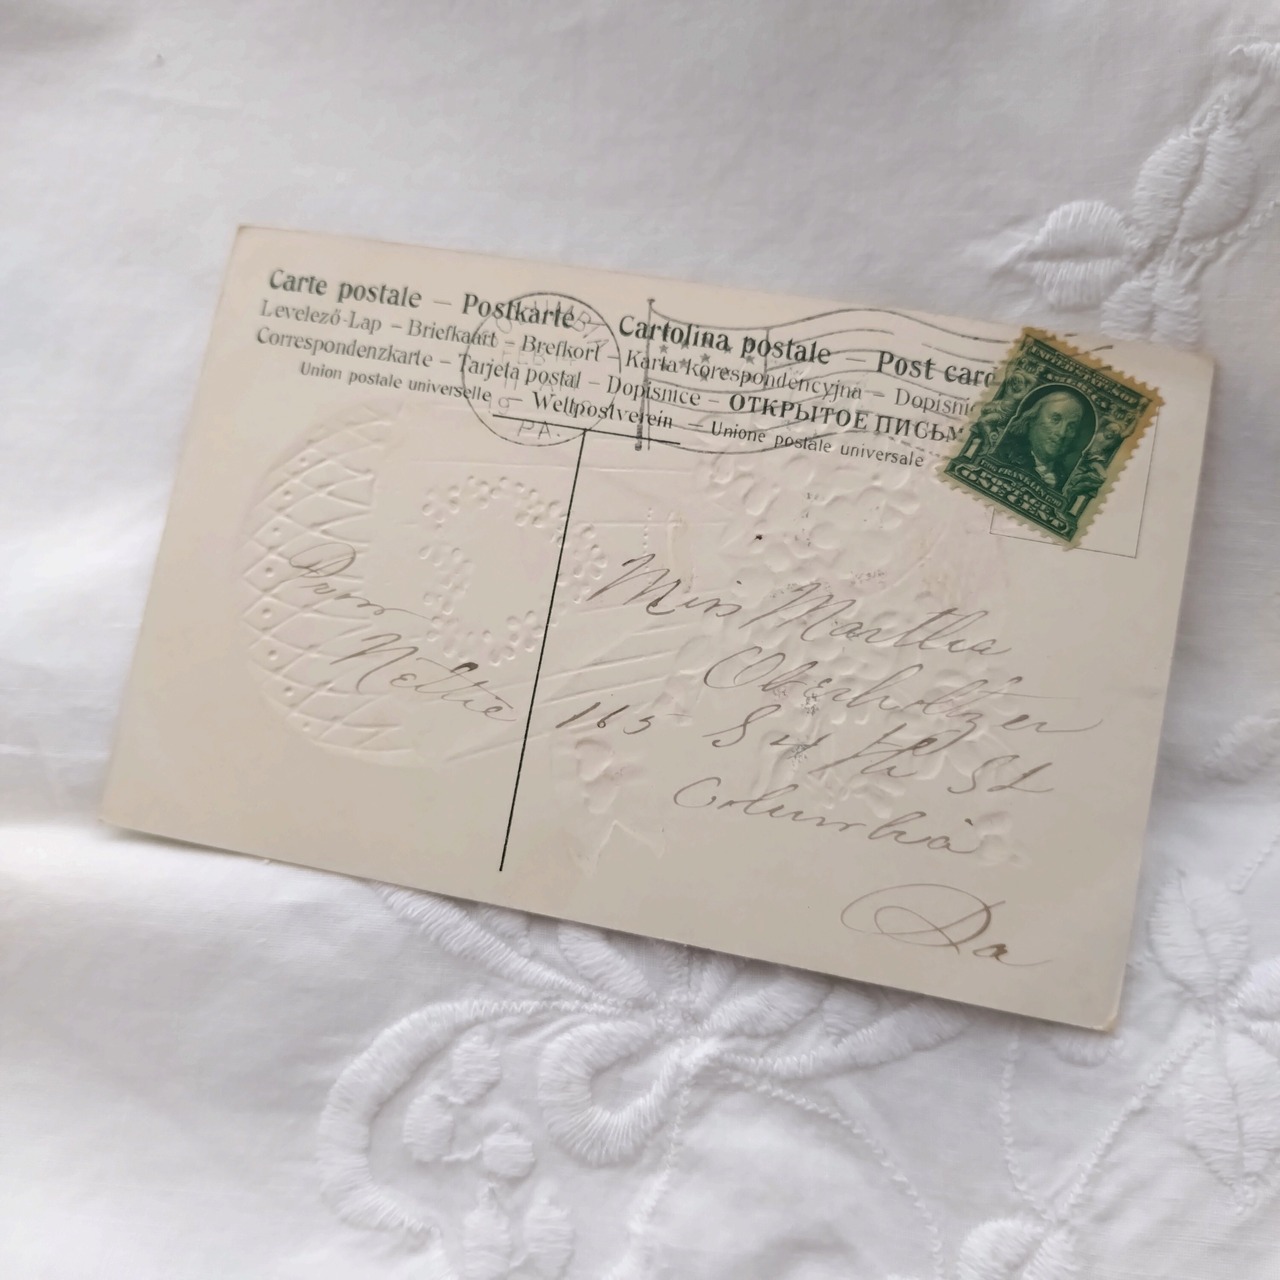 Carte postale — Postkarte Cartolina postale — Post card
Levelező-Lap – Briefkaart – Brefkort – Karta korespondencyjna – Dopisnic
Correspondenzkarte – Tarjeta postal – Dopisnice – ОТКРЫТОЕ ПИСЬМ
Union postale universelle — Weltpostverein — Unione postale universale
COLUMBIA
FEB
PA.
FRANKLIN
ONE CENT
1 1
From
Nettie
Miss Martha
Oberholtzer
165 S 4th St
Columbia
Pa